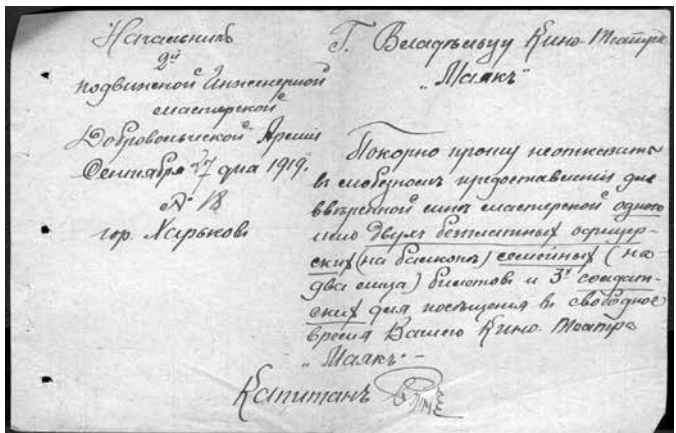 Начальникъ
2й
подвижной Инженерной
мастерской
Добровольческой Арміи
Сентября 17 дня 1919.
№ 18
гор. Харьковъ
Г. Владѣльцу Кино-Театра
„Маякъ"
Покорно прошу неотказать
въ любезномъ предоставленіи для
ввѣренной мнѣ мастерской одного
или двухъ безплатныхъ офицер-
скихъ (на балконъ) семейныхъ (на
два лица) билетовъ и 3хъ солдат-
скихъ для посѣщенія въ свободное
время Вашего Кино-Театра
„Маякъ".-
Капитанъ